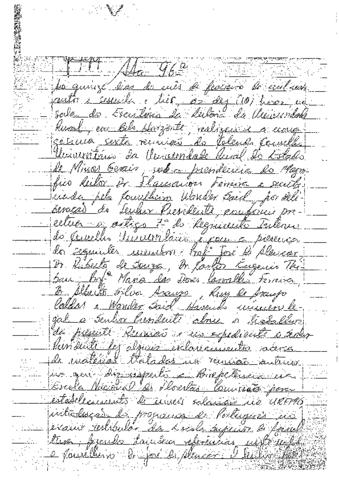 Ata 96ª
Aos quinze dias do mês de fevereiro de mil nove-
centos e sessenta e três, às dez (10) horas, na
sala do Escritório da Reitoria da Universidade
Rural, em Belo Horizonte, realizou-se a nona-
gésima sexta reunião do Colendo Conselho
Universitário da Universidade Rural do Estado
de Minas Gerais, sob a presidência do Magní-
fico Reitor Dr. Ferreira e secre-
tariada pelo Conselheiro Wander Said, por deli-
beração do Senhor Presidente, conforme pre-
ceitua o artigo 7º do Regimento Interno
do Conselho Universitário e com a presença
dos seguintes membros: Prof. José de Alencar,
Dr. Roberto de Souza, Dr. Eugenio
Profª Maria das Dores Carvalho Ferreira,
Dr. Alberto Silva Araujo, Ruy de Araujo
Caldas e Wander Said. Havendo número le-
gal o Senhor Presidente abriu os trabalhos
da presente Reunião e no expediente o Senhor
Presidente fez alguns esclarecimentos acerca
de matérias tratadas na reunião anterior
no que diz respeito a
Escola Nacional de Florestas, Comissão para
estabelecimento de níveis salariais na UREMG
introdução do programa de Português no
exame vestibular da Escola Superior de Agricul-
tura, fazendo também referências,
o Conselheiro Dr. José de Alencar, o Senhor